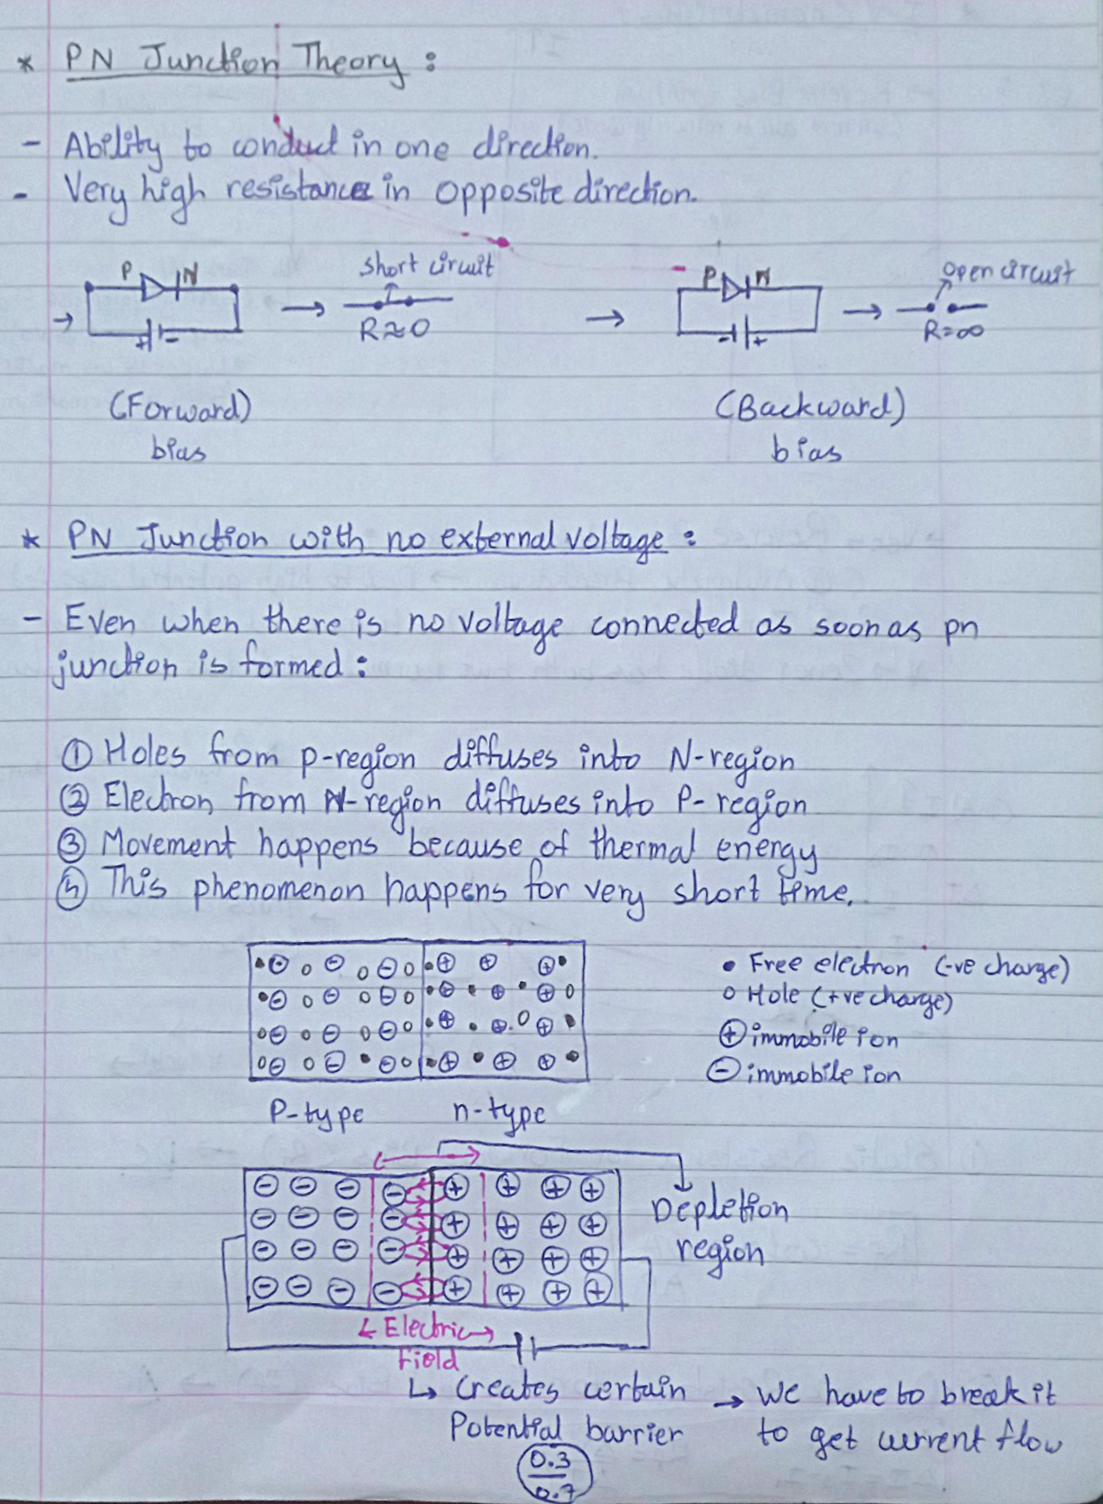 * PN Junction Theory :
- Ability to conduct in one direction.
- Very high resistance in opposite direction.
P N
short circuit
P N
open circuit
→ + - → R≈0 → - + → R=∞
(Forward) bias
(Backward) bias
* PN Junction with no external voltage :
- Even when there is no voltage connected as soon as pn
junction is formed :
① Holes from p-region diffuses into N-region
② Electron from N-region diffuses into P-region
③ Movement happens because of thermal energy
④ This phenomenon happens for very short time.
• Free electron (-ve charge)
o Hole (+ve charge)
⊕ immobile ion
⊖ immobile ion
P-type n-type
Depletion
region
Electric
Field
↳ Creates certain → we have to break it
Potential barrier to get current flow
0.3
0.7